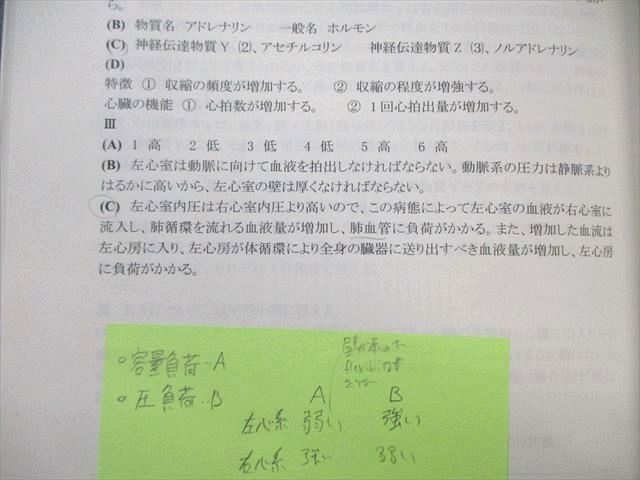 ら。
(B) 物質名 アドレナリン 一般名 ホルモン
(C) 神経伝達物質Y (2)、アセチルコリン 神経伝達物質Z (3)、ノルアドレナリン
(D)
特徴 ① 収縮の頻度が増加する。 ② 収縮の程度が増強する。
心臓の機能 ① 心拍数が増加する。 ② 1回心拍出量が増加する。
Ⅲ
(A) 1 高 2 低 3 低 4 低 5 高 6 高
(B) 左心室は動脈に向けて血液を拍出しなければならない。動脈系の圧力は静脈系より
はるかに高いから、左心室の壁は厚くなければならない。
(C) 左心室内圧は右心室内圧より高いので、この病態によって左心室の血液が右心室に
流入し、肺循環を流れる血液量が増加し、肺血管に負荷がかかる。また、増加した血流は
左心房に入り、左心房が体循環により全身の臓器に送り出すべき血液量が増加し、左心房
に負荷がかかる。
○容量負荷‥A
壁が薄いので
○圧負荷‥B
A B
左心系 弱い 強い
右心系 強い 弱い